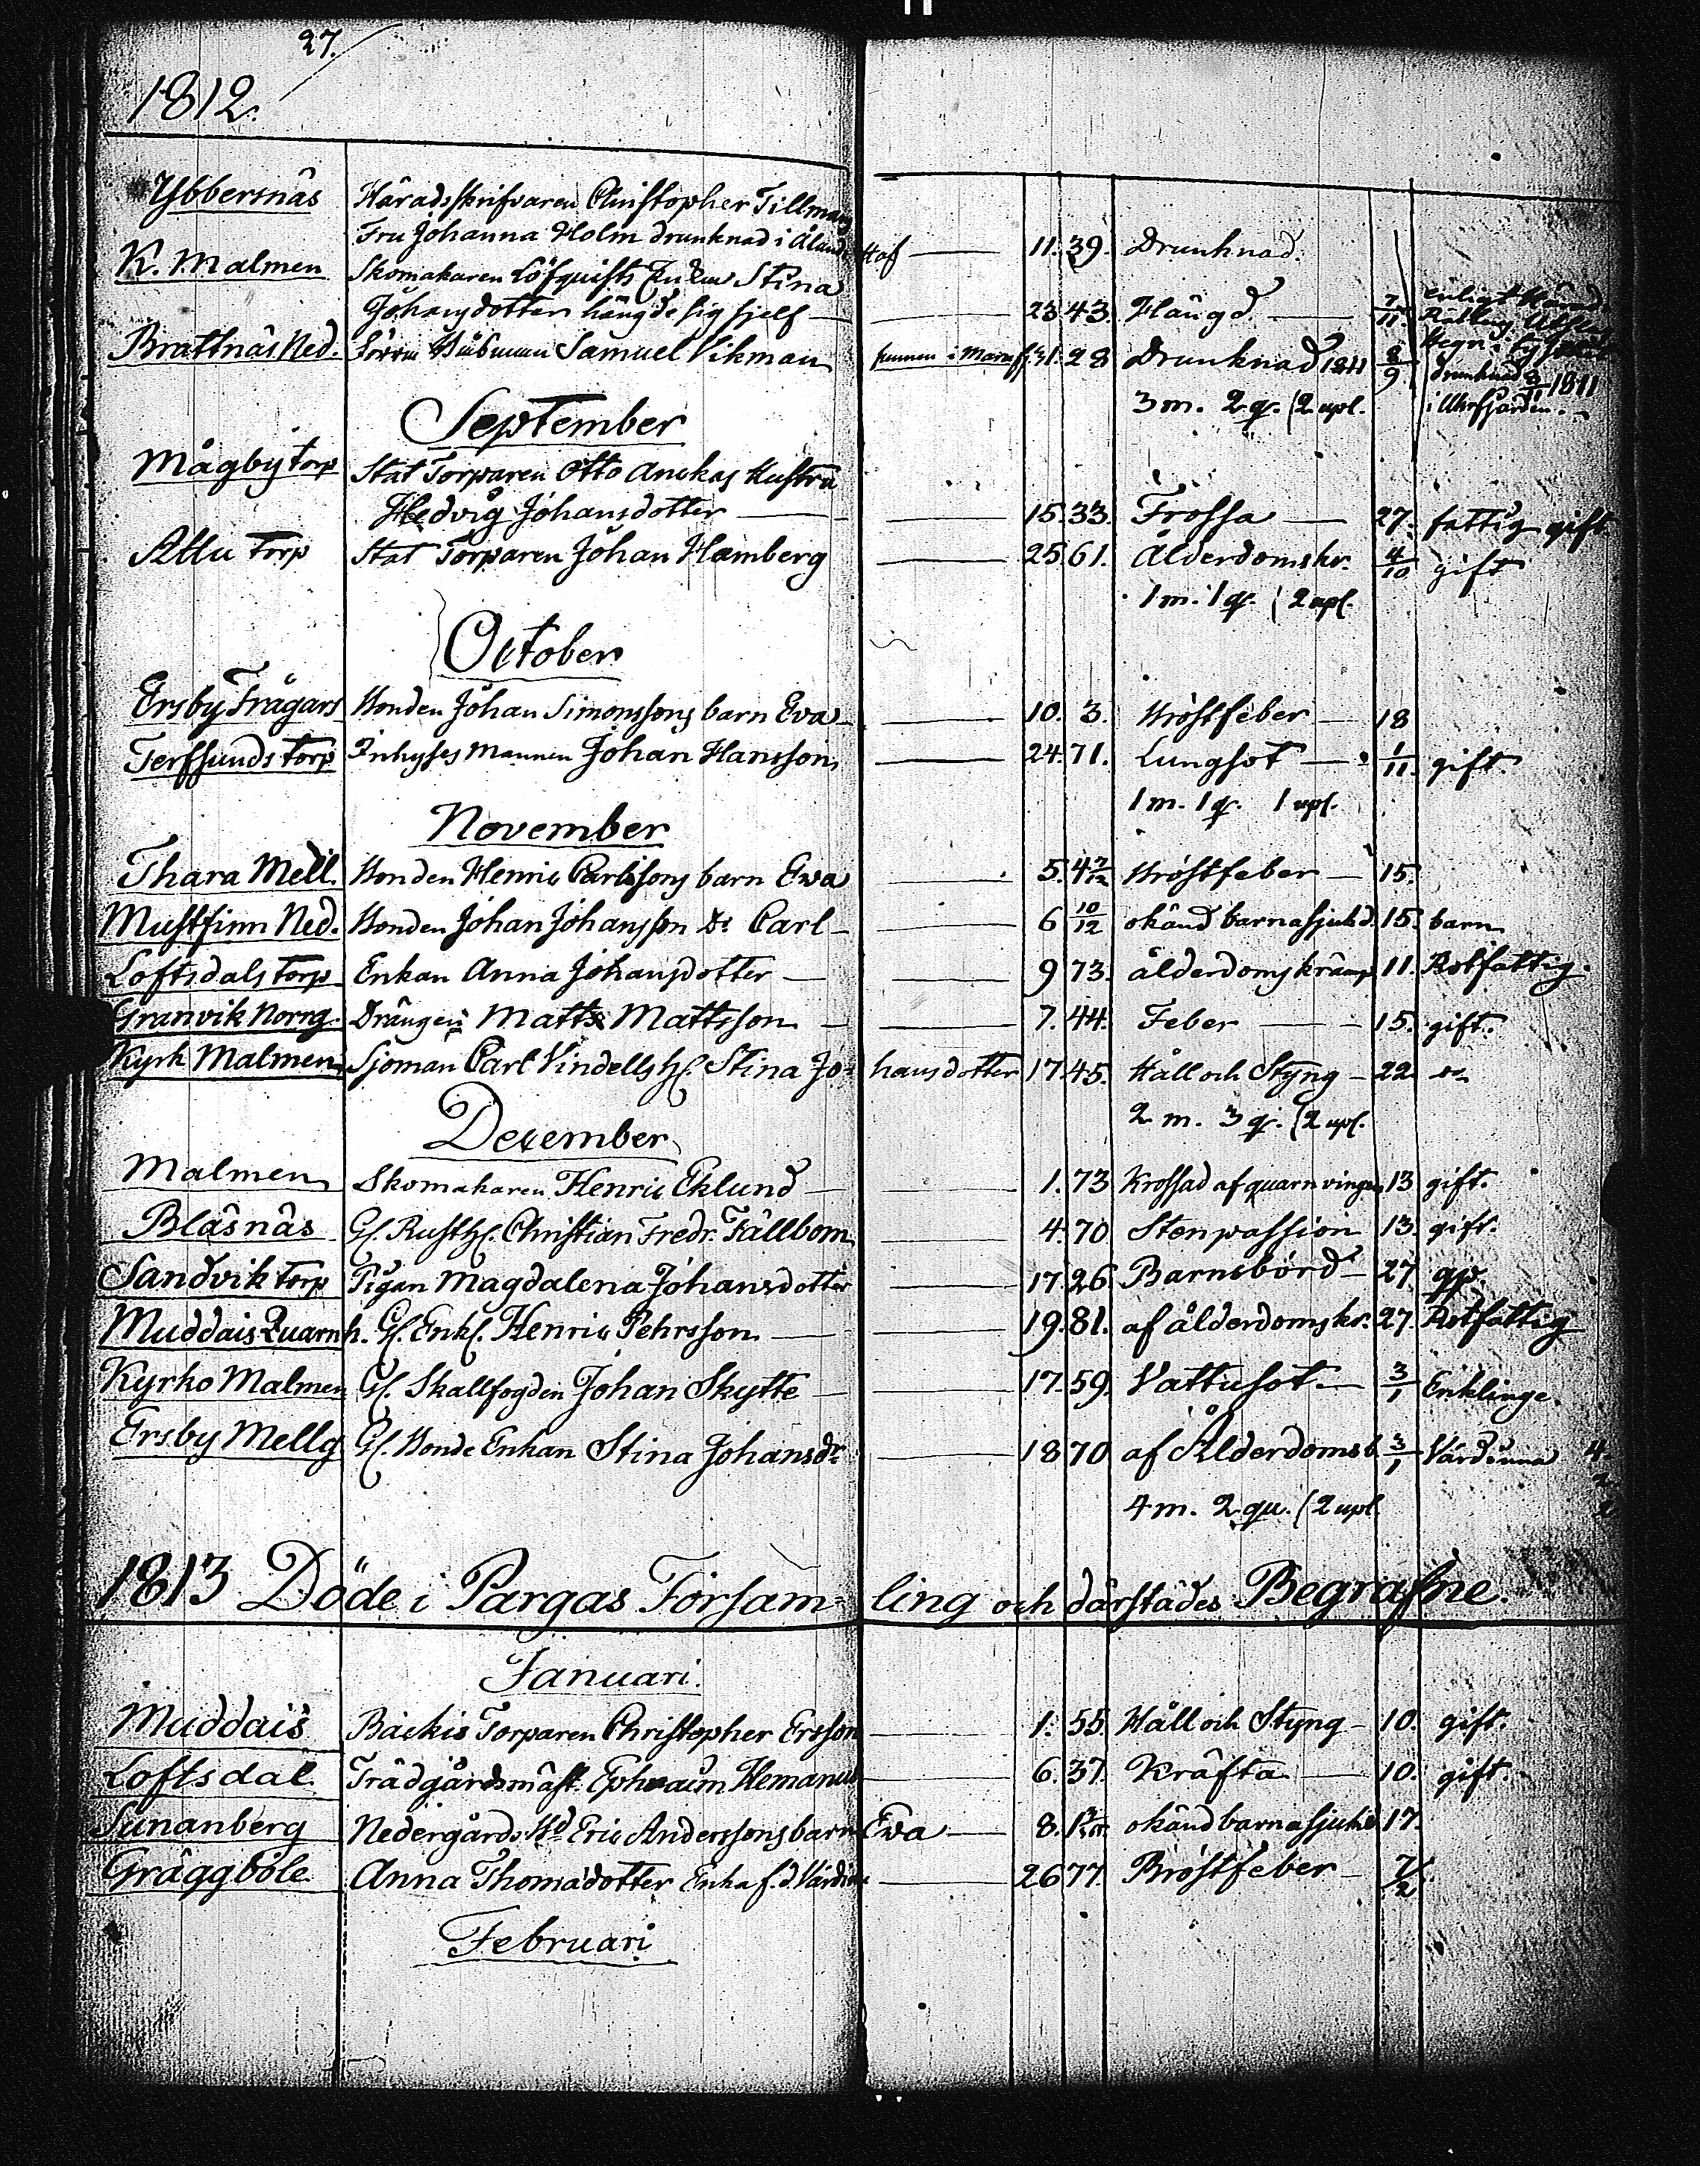 27.
1812.
Ybbersnäs Häradsskrifvaren Christopher Tillmans
Fru Johanna Holm drunknad i Ålands Haf 11. 39. Drunknad.
K. Malmen Skomakaren Löfquists Enkan Stina
Johansdotter hängde sig sjelf 23 43. Hängd 7/11. enligt
Brattnäs Ned. Samuel Vikman funnen i 31. 28 Drunknad 1811 8/9 drunknad 1811
3 m. 2 q. (2 upl. i
September
Mågby torp Stat Torparen Otto Hustru
Hedvig Johansdotter 15. 33. Frossa 27. fattig gift
Attu Torp Stat Torparen Johan Hamberg 25 61. Ålderdomskr. 4/10 gift
1 m. 1 q. ( 2 upl.
October
Ersby Frågars Bonden Johan Simonssons barn Eva 10. 3. Bröstfeber 18
Terfsunds torp Inhyses Mannen Johan Hansson 24. 71. Lungsot 1/11. gift.
1 m. 1 q. 1 upl.
November
Thara Mell. Bonden Henric Carlssons barn Eva 5. 4 7/12 Bröstfeber 15.
Mustfinn Ned. Bonden Johan Johansson Do Carl 6 10/12 okänd barnasjukd. 15. barn
Loftsdals torp Enkan Anna Johansdotter 9 73. ålderdomskrämp 11. Rotfattig.
Granvik Norrg. Drängen Matts Mattsson 7. 44. Feber 15. gift.
Kyrk Malmen Sjöman Carl Vindells h. Stina Jo= hansdotter 17. 45. Håll och Styng 22
2 m. 3 q. (2 upl.
December
Malmen Skomakaren Henric Eklund 1. 73 Krossad af quarnvingen 13 gift.
Bläsnäs Gl. Rusth. Christian Fredr. Fällbom 4. 70 Stenpassion 13. gift.
Sandvik torp Pigan Magdalena Johansdotter 17. 26 Barnsbörd 27
Muddais Quarnh. Gl. Enkl. Henric Pehrsson 19. 81. af ålderdomskr. 27. Rotfattig
Kyrko Malmen Gl. Skallfogden Johan Skytte 17. 59. Vattusot 3/1 Enklinge.
Ersby Mellg Gl. Bonde Enkan Stina Johansdr 18 70 af Ålderdomsb. 3/1 Värdinna
4 m. 2 qu. (2 upl.
1813 Döde i Pargas Församling och därstädes Begrafne.
Januari.
Muddais Backis Torparen Christopher Ersson 1. 55 Håll och Styng 10. gift.
Loftsdal. Trädgårdsmäst. Ephraim Hemanus 6. 37. Kräfta 10. gift.
Sunanberg Nedergårds Bd Eric Anderssons barn Eva 8. okänd barnasjukd 17.
Gräggböle. Anna Thomädotter Enka f. d. Värdin 26 77. Bröstfeber 7/2.
Februari